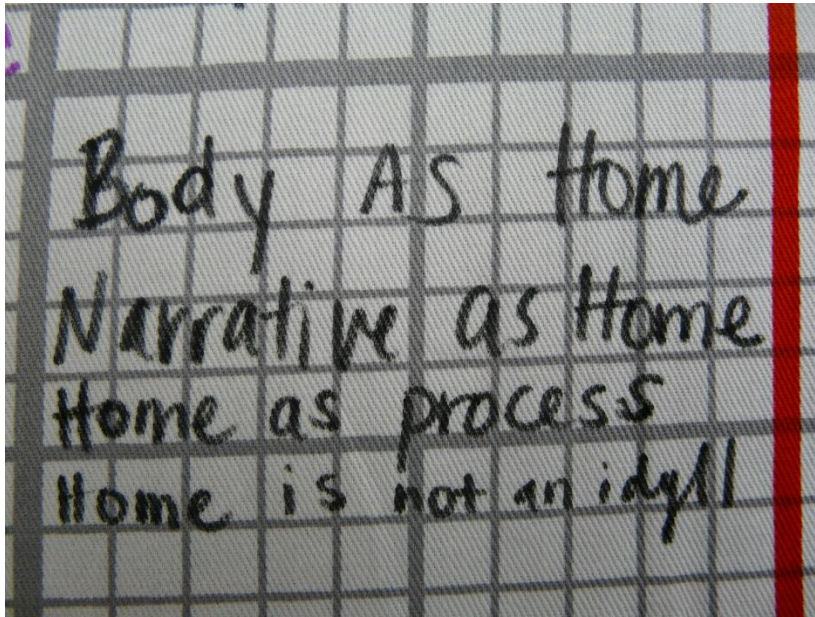 Body As Home
Narrative as Home
Home as process
Home is not an idyll